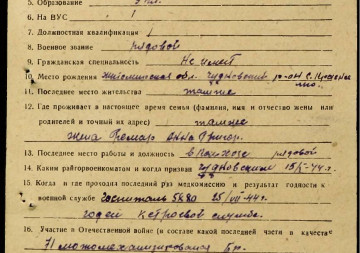 5. Образование 5 кл.
6. На ВУС 1
7. Должностная квалификация 1
8. Военное звание рядовой
9. Гражданская специальность Не имеет
10. Место рождения Житомирская обл. Чудновский р-он с.
11. Последнее место жительства тамже
12. Где проживает в настоящее время семья (фамилия, имя и отчество жены или
родителей и точный их адрес) тамже
жена Анна
13. Последнее место работы и должность в рядовой
14. Каким райгорвоенкоматом и когда призван Чудновским 44 г.
15. Когда и где проходил последний раз медкомиссию и результат годности к
военной службе госпиталь 5480 25/VII-44 г.
годен к строевой службе.
16. Участие в Отечественной войне (в составе какой последней части в качестве
71 мотомеханизированая бр.